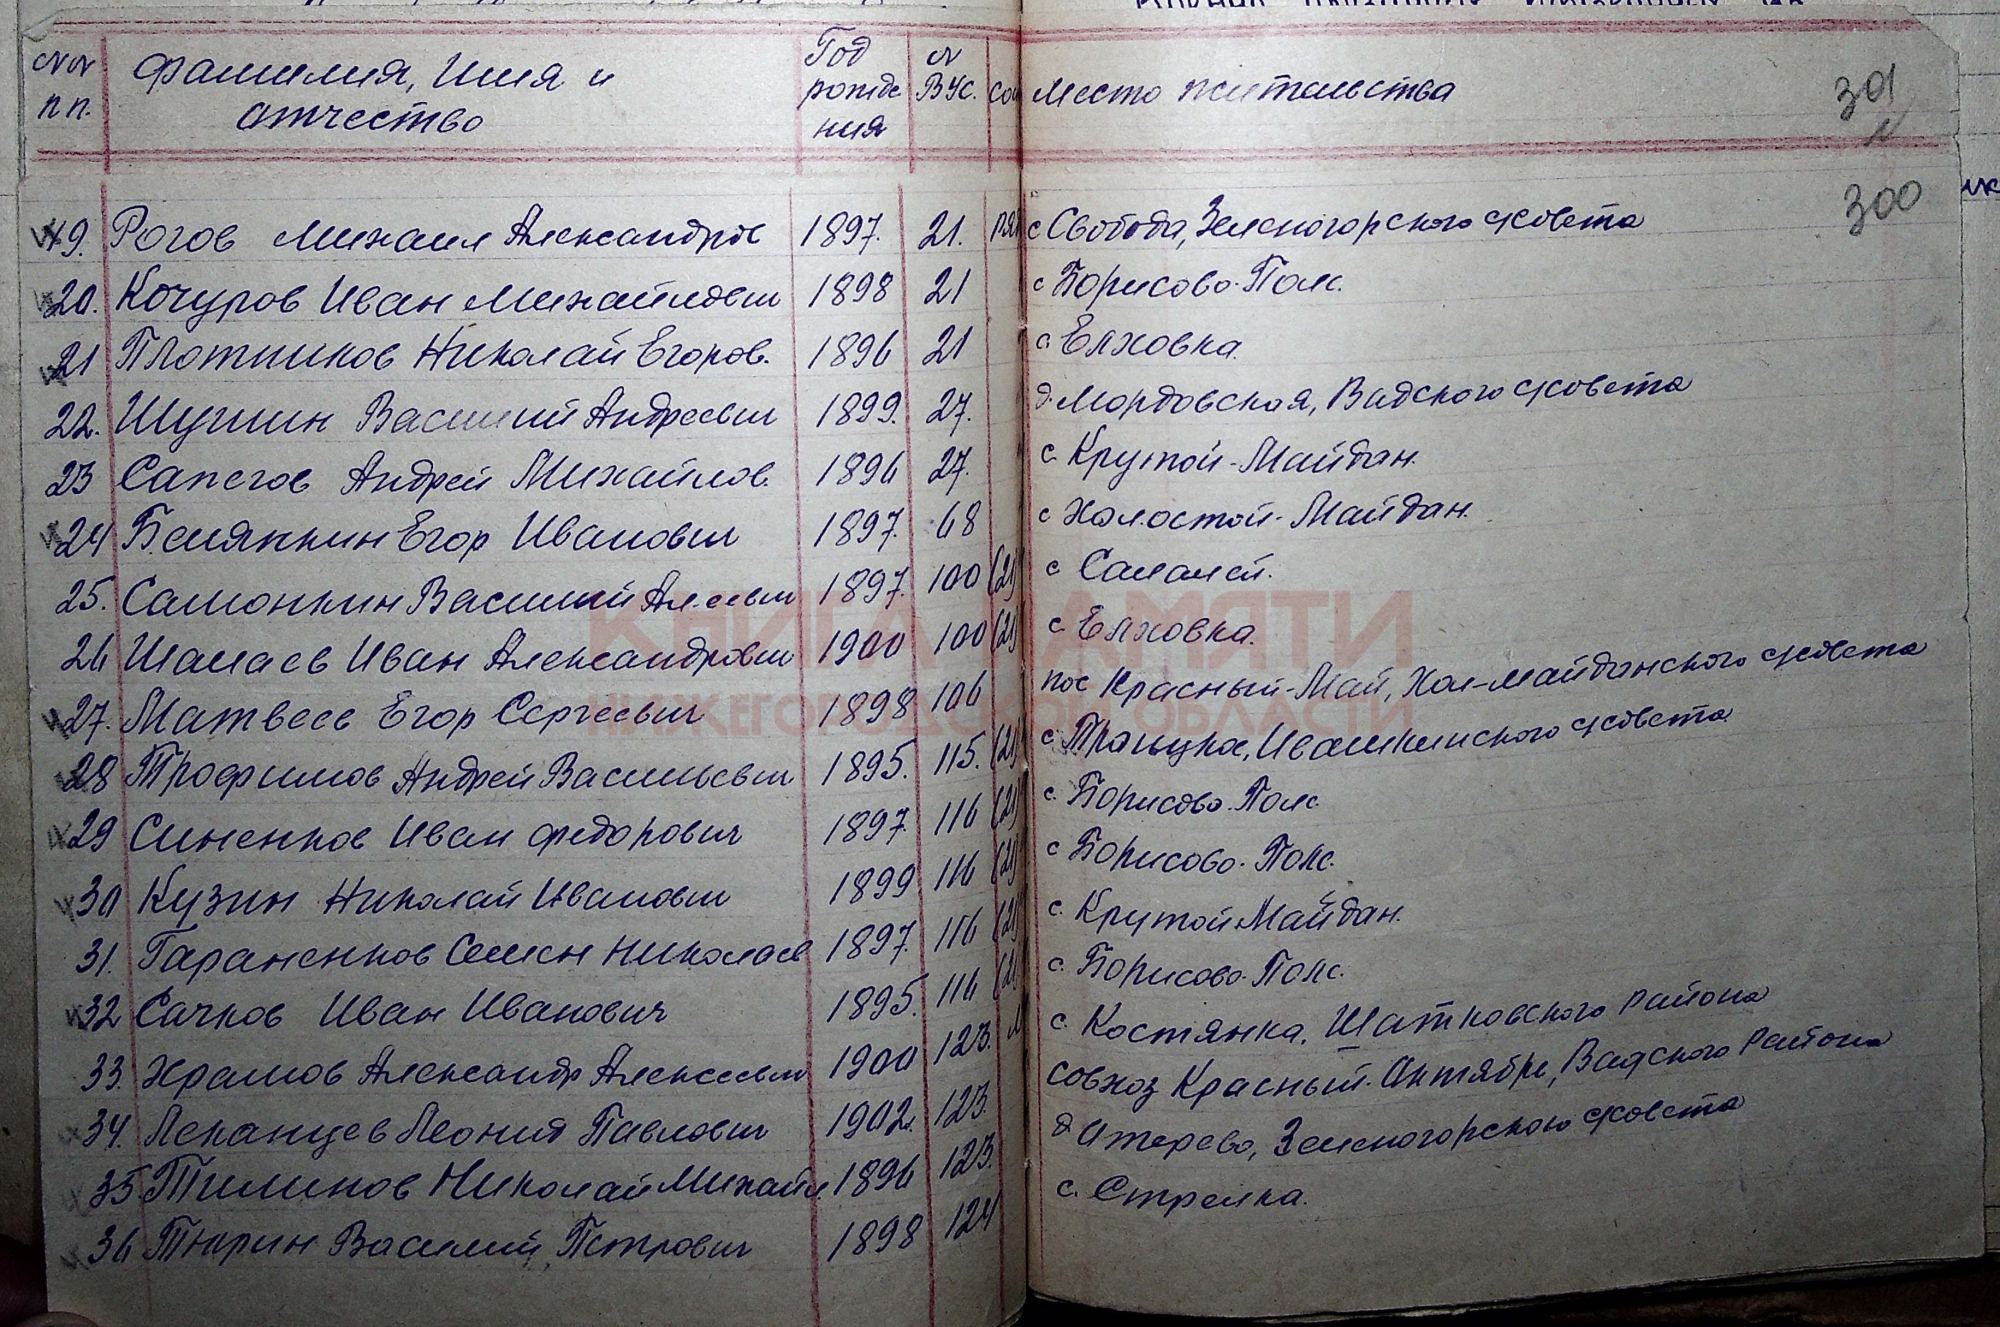 №№ п п. Фамилия, Имя и отчество Год рождения № ВУС. Место жительства 301
300
19. Рогов Михаил Александров 1897. 21. ряд с Свобода, Зеленогорского с/совета
20. Кочуров Иван Михайлович 1898 21 с Борисово-Поле.
21 Плотников Николай Егоров. 1896 21 с Елховка.
22. Шутин Василий Андреевич 1899. 27. д. Мордовская, Вадского с/совета
23 Сапегов Андрей Михайлов. 1896 27. с. Крутой-Майдан.
24 Егор Иванович 1897. 68 с Холостой-Майдан.
25. Самонкин Василий 1897. 100 (21) с
26 Шалаев Иван Александрович 1900 100 (21) с. Елховка.
27. Матвеев Егор Сергеевич 1898 106 пос Красный-Май, Хол-Майданского с/совета
28 Трофимов Андрей Васильевич 1895. 115. (21) с. Троицкое, с/совета
29 Синенков Иван Федорович 1897. 116 (21) с. Борисово-Поле
30 Кузин Николай Иванович 1899 116 (21) с Борисово-Поле.
31. Гараненков Семен Николаев 1897. 116 (21) с. Крутой Майдан.
32 Сачков Иван Иванович 1895. 116 (21 с. Борисово-Поле.
33. Храмов Александр Алексеевич 1900 123. с. Костянка, Шатковского района
34. Леканцев Леонид Павлович 1902. 123. совхоз Красный-Октябрь, Вадского района
35 Тилинов Николай Михайл 1896 123. д Отерево, Зеленогорского с/совета
36 Тюрин Василий Петрович 1898 124 с. Стрелка.
КНИГА ПАМЯТИ
НИЖЕГОРОДСКОЙ ОБЛАСТИ